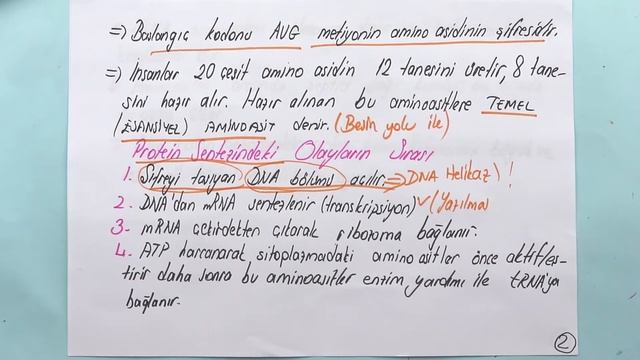 =) Başlangıç kodonu AUG metiyonin amino asidinin şifresidir.
=) İnsanlar 20 çeşit amino asidin 12 tanesini üretir, 8 tane-
sini hazır alır. Hazır alınan bu aminoasitlere TEMEL
(ESANSİYEL) AMİNOASİT denir. (Besin yolu ile)
Protein Sentezindeki Olayların Sırası
1. Şifreyi taşıyan DNA bölümü açılır. => DNA Helikaz) !
2. DNA'dan mRNA sentezlenir (transkripsiyon) (Yazılma
3. mRNA çekirdekten çıkarak ribozoma bağlanır.
4. ATP harcanarak sitoplazmadaki amino asitler önce aktifleş-
tirir daha sonra bu aminoasitler enzim yardımı ile tRNA'ya
bağlanır.
2